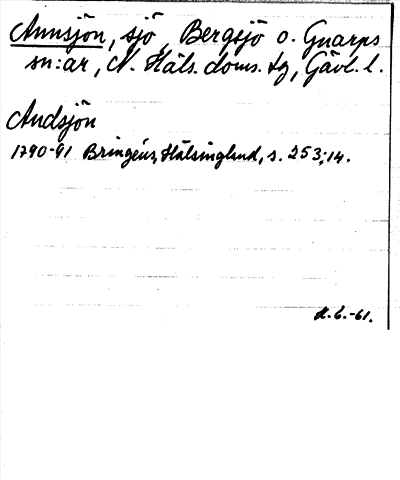 Annsjön, sjö, Bergsjö o. Gnarps
sn:ar, N. Häls. doms. tg, Gävl. l.
Andsjön
1790-91 Bringéus, Hälsingland, s. 253; 14.
-61.